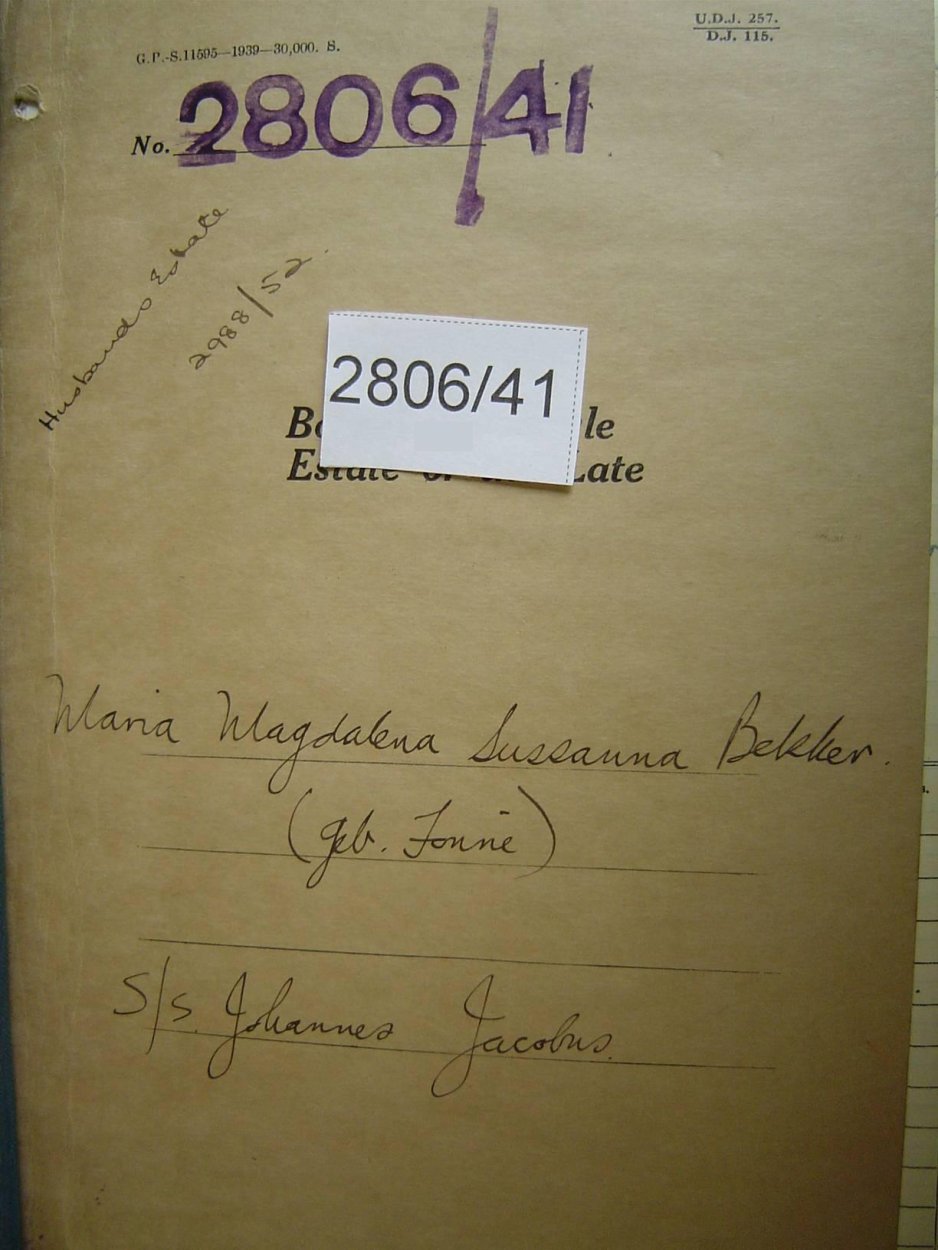 U.D.J. 257.
D.J. 115.
G.P.-S.11595—1939—30,000. S.
No. 2806/41
Husbands Estate
2988/52.
2806/41
Estate Late
Maria Magdalena Sussanna Bekker.
(geb. Fonné)
S/s. Johannes Jacobus.